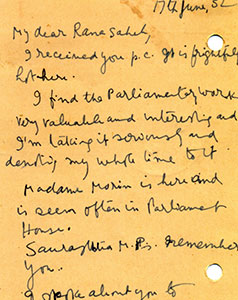 17th June, 52
My dear Rana Saheb,
I received you p.c. It is frightfully
hot here.
I find the Parliamentary work
very valuable and interesting and
I'm taking it seriously and
devoting my whole time to it.
Madame Morin is here and
is seen often in Parliament
House.
Saurashtra M.P.s. remember
you.
I spoke about you to